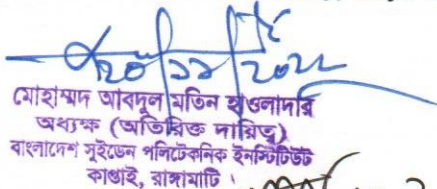 ২০/১১/২০২২
মোহাম্মদ আবদুল মতিন হাওলাদার
অধ্যক্ষ (অতিরিক্ত দায়িত্ব)
বাংলাদেশ সুইডেন পলিটেকনিক ইনস্টিটিউট
কাপ্তাই, রাঙ্গামাটি।